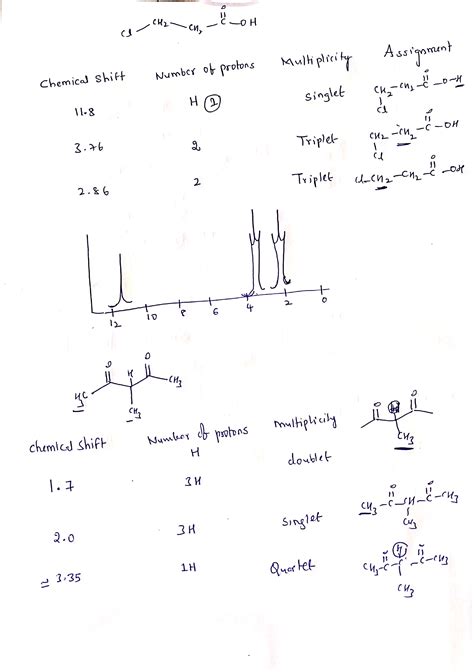 Cl-CH2-CH2-C-OH
O
Chemical Shift Number of protons Multiplicity Assignment
11.8 H 1 Singlet CH2-CH2-C-O-H
O
Cl
3.76 2 Triplet CH2-CH2-C-OH
O
Cl
2.86 2 Triplet Cl-CH2-CH2-C-OH
O
12 10 8 6 4 2 0
O H O
H3C CH3
CH3
Chemical Shift Number of protons Multiplicity
H
O H O
CH3
1.7 3H doublet
2.0 3H Singlet CH3-C-CH-C-CH3
O O
CH3
≈ 3.35 1H Quartet CH3-C-C-C-CH3
O H O
CH3